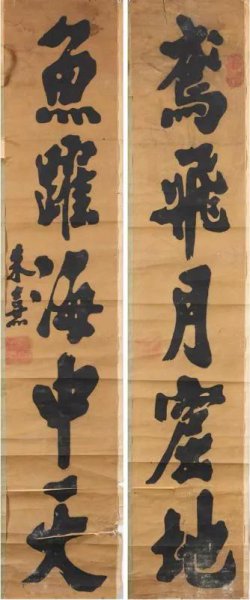 鸢飛月窟地
魚躍海中天
朱熹